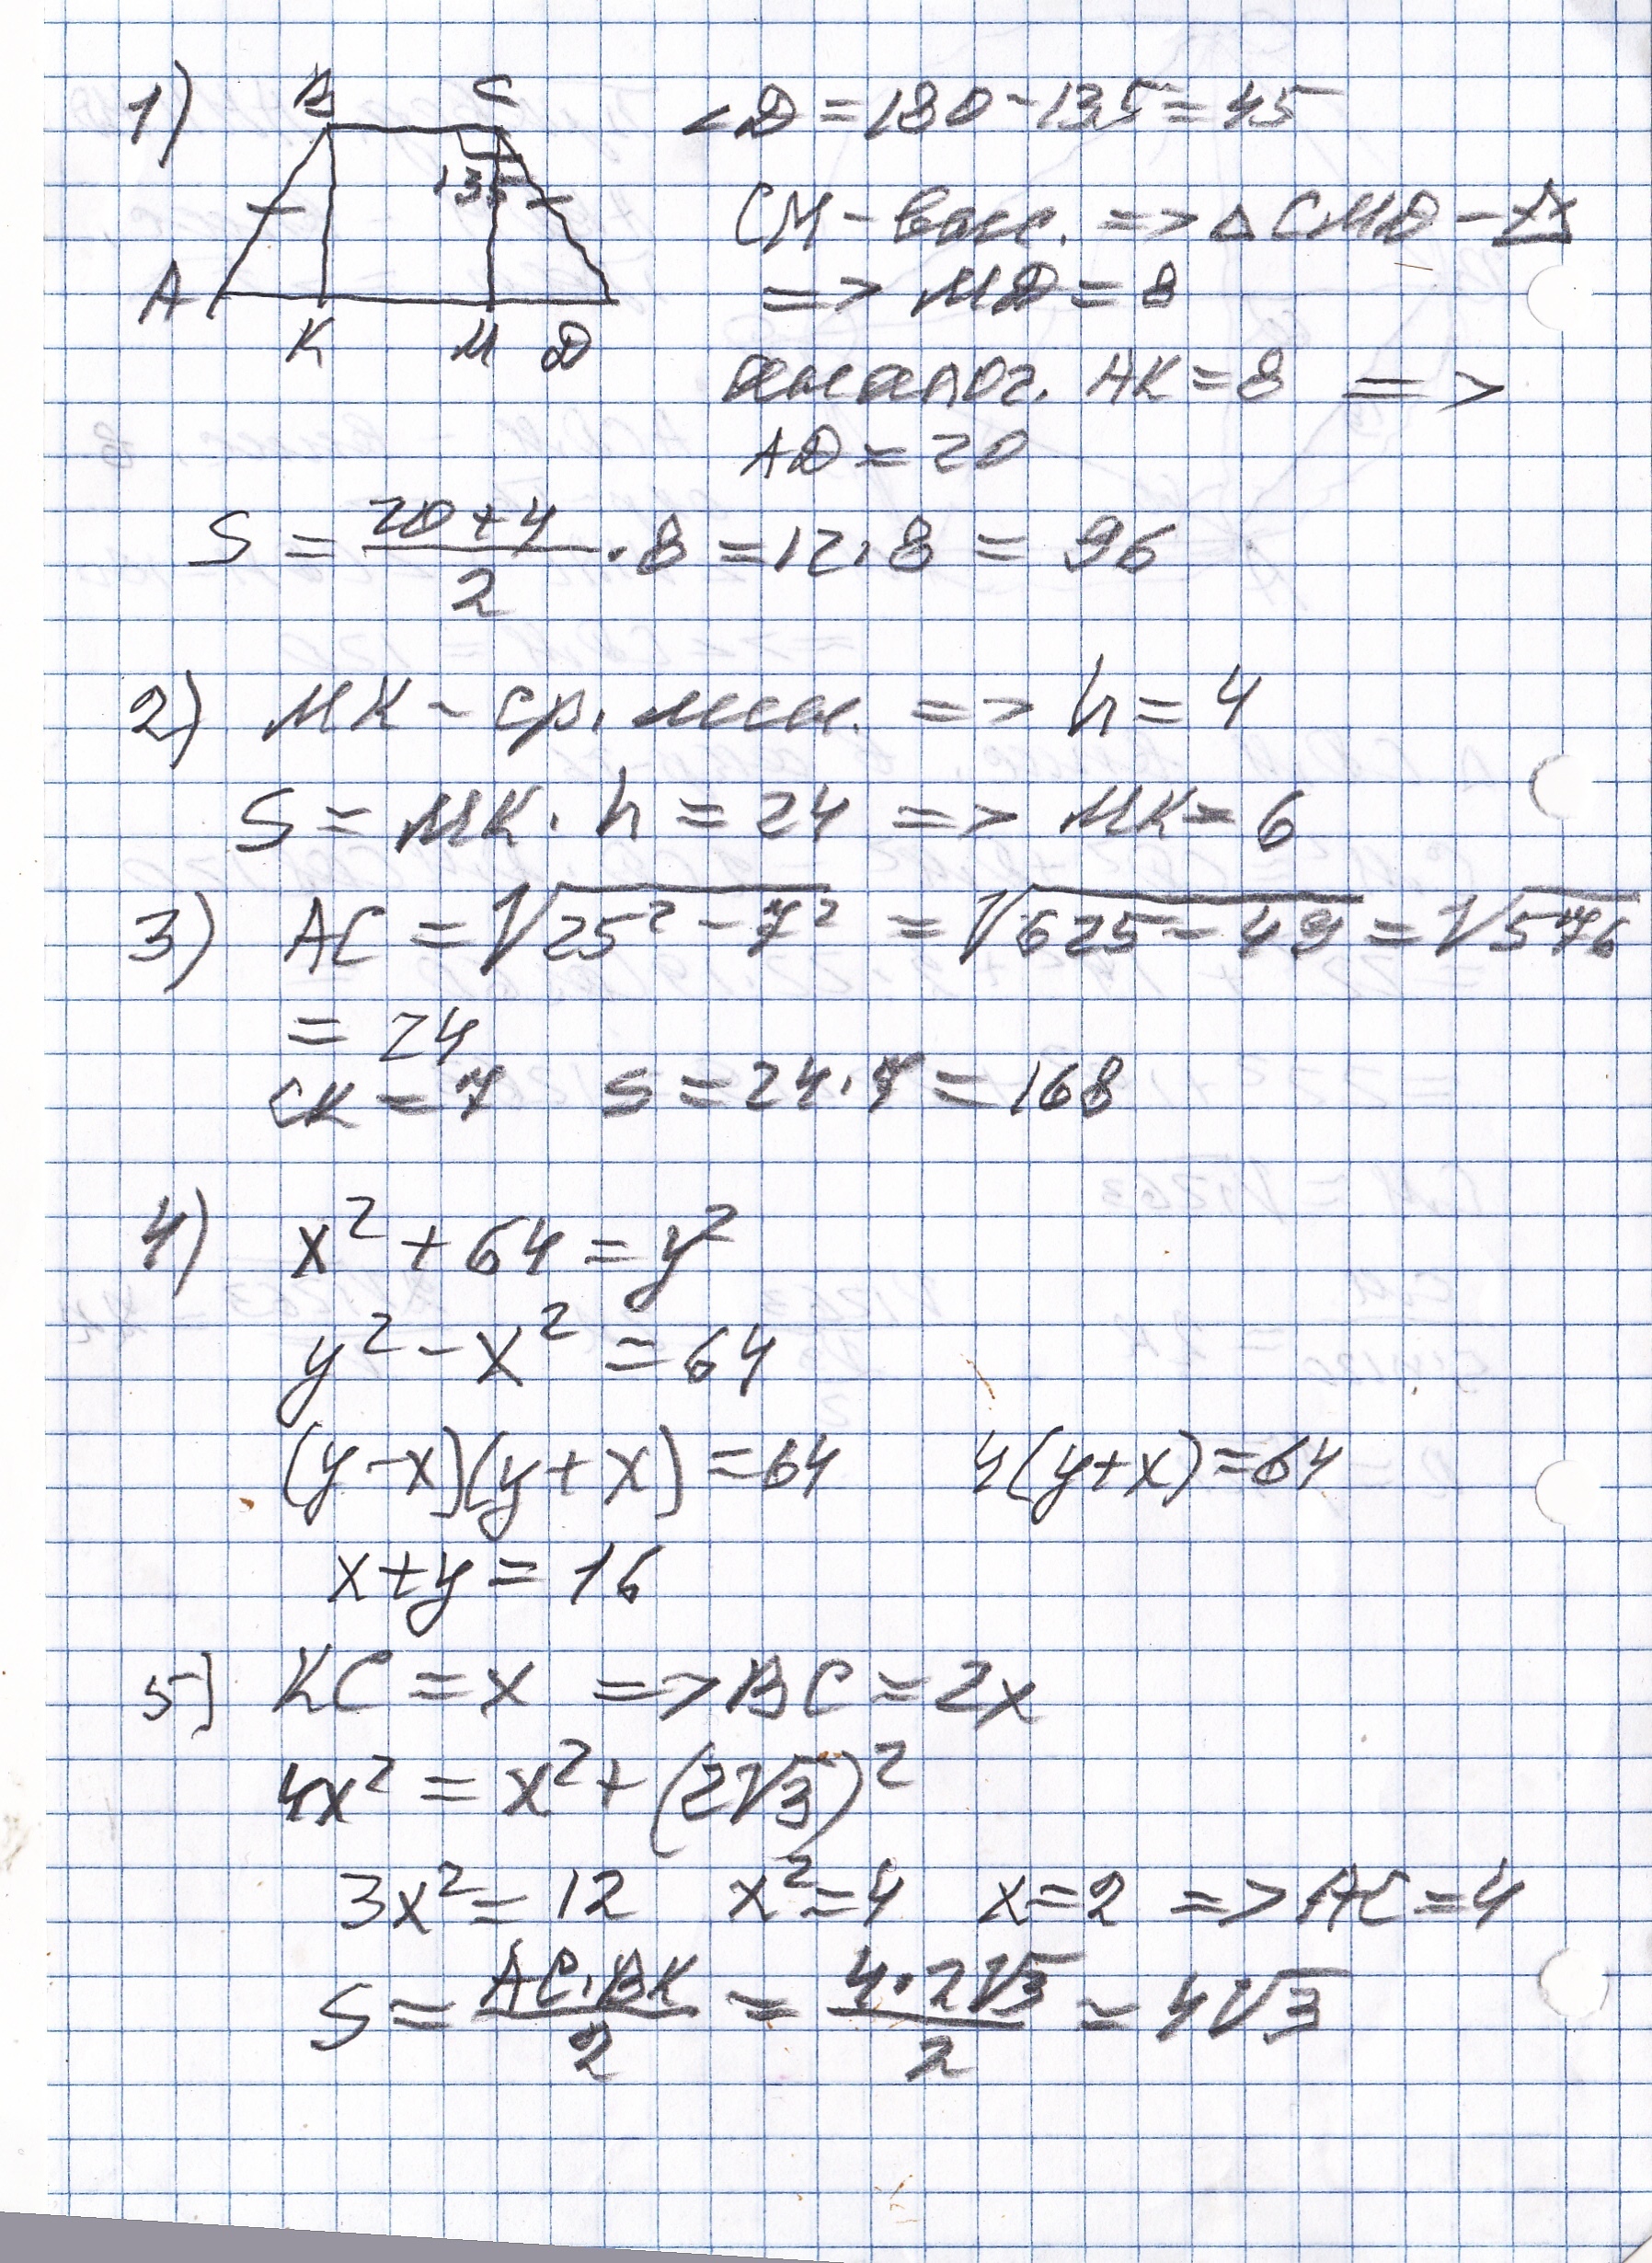 1) B C ∠D = 180 - 135 = 45
135
CM - выс. => △CMD - р/б
A K M D => MD = 8
аналог. AK = 8 =>
AD = 20
S = (20+4)/2 · 8 = 12 · 8 = 96
2) MK - ср. лин. => h = 4
S = MK · h = 24 => MK = 6
3) AC = √(25² - 7²) = √(625 - 49) = √576
= 24
CK = 7 S = 24 · 7 = 168
4) x² + 64 = y²
y² - x² = 64
(y - x)(y + x) = 64 4(y + x) = 64
x + y = 16
5) KC = x => BC = 2x
4x² = x² + (2√3)²
3x² = 12 x² = 4 x = 2 => AC = 4
S = (AC · BK)/2 = (4 · 2√3)/2 = 4√3